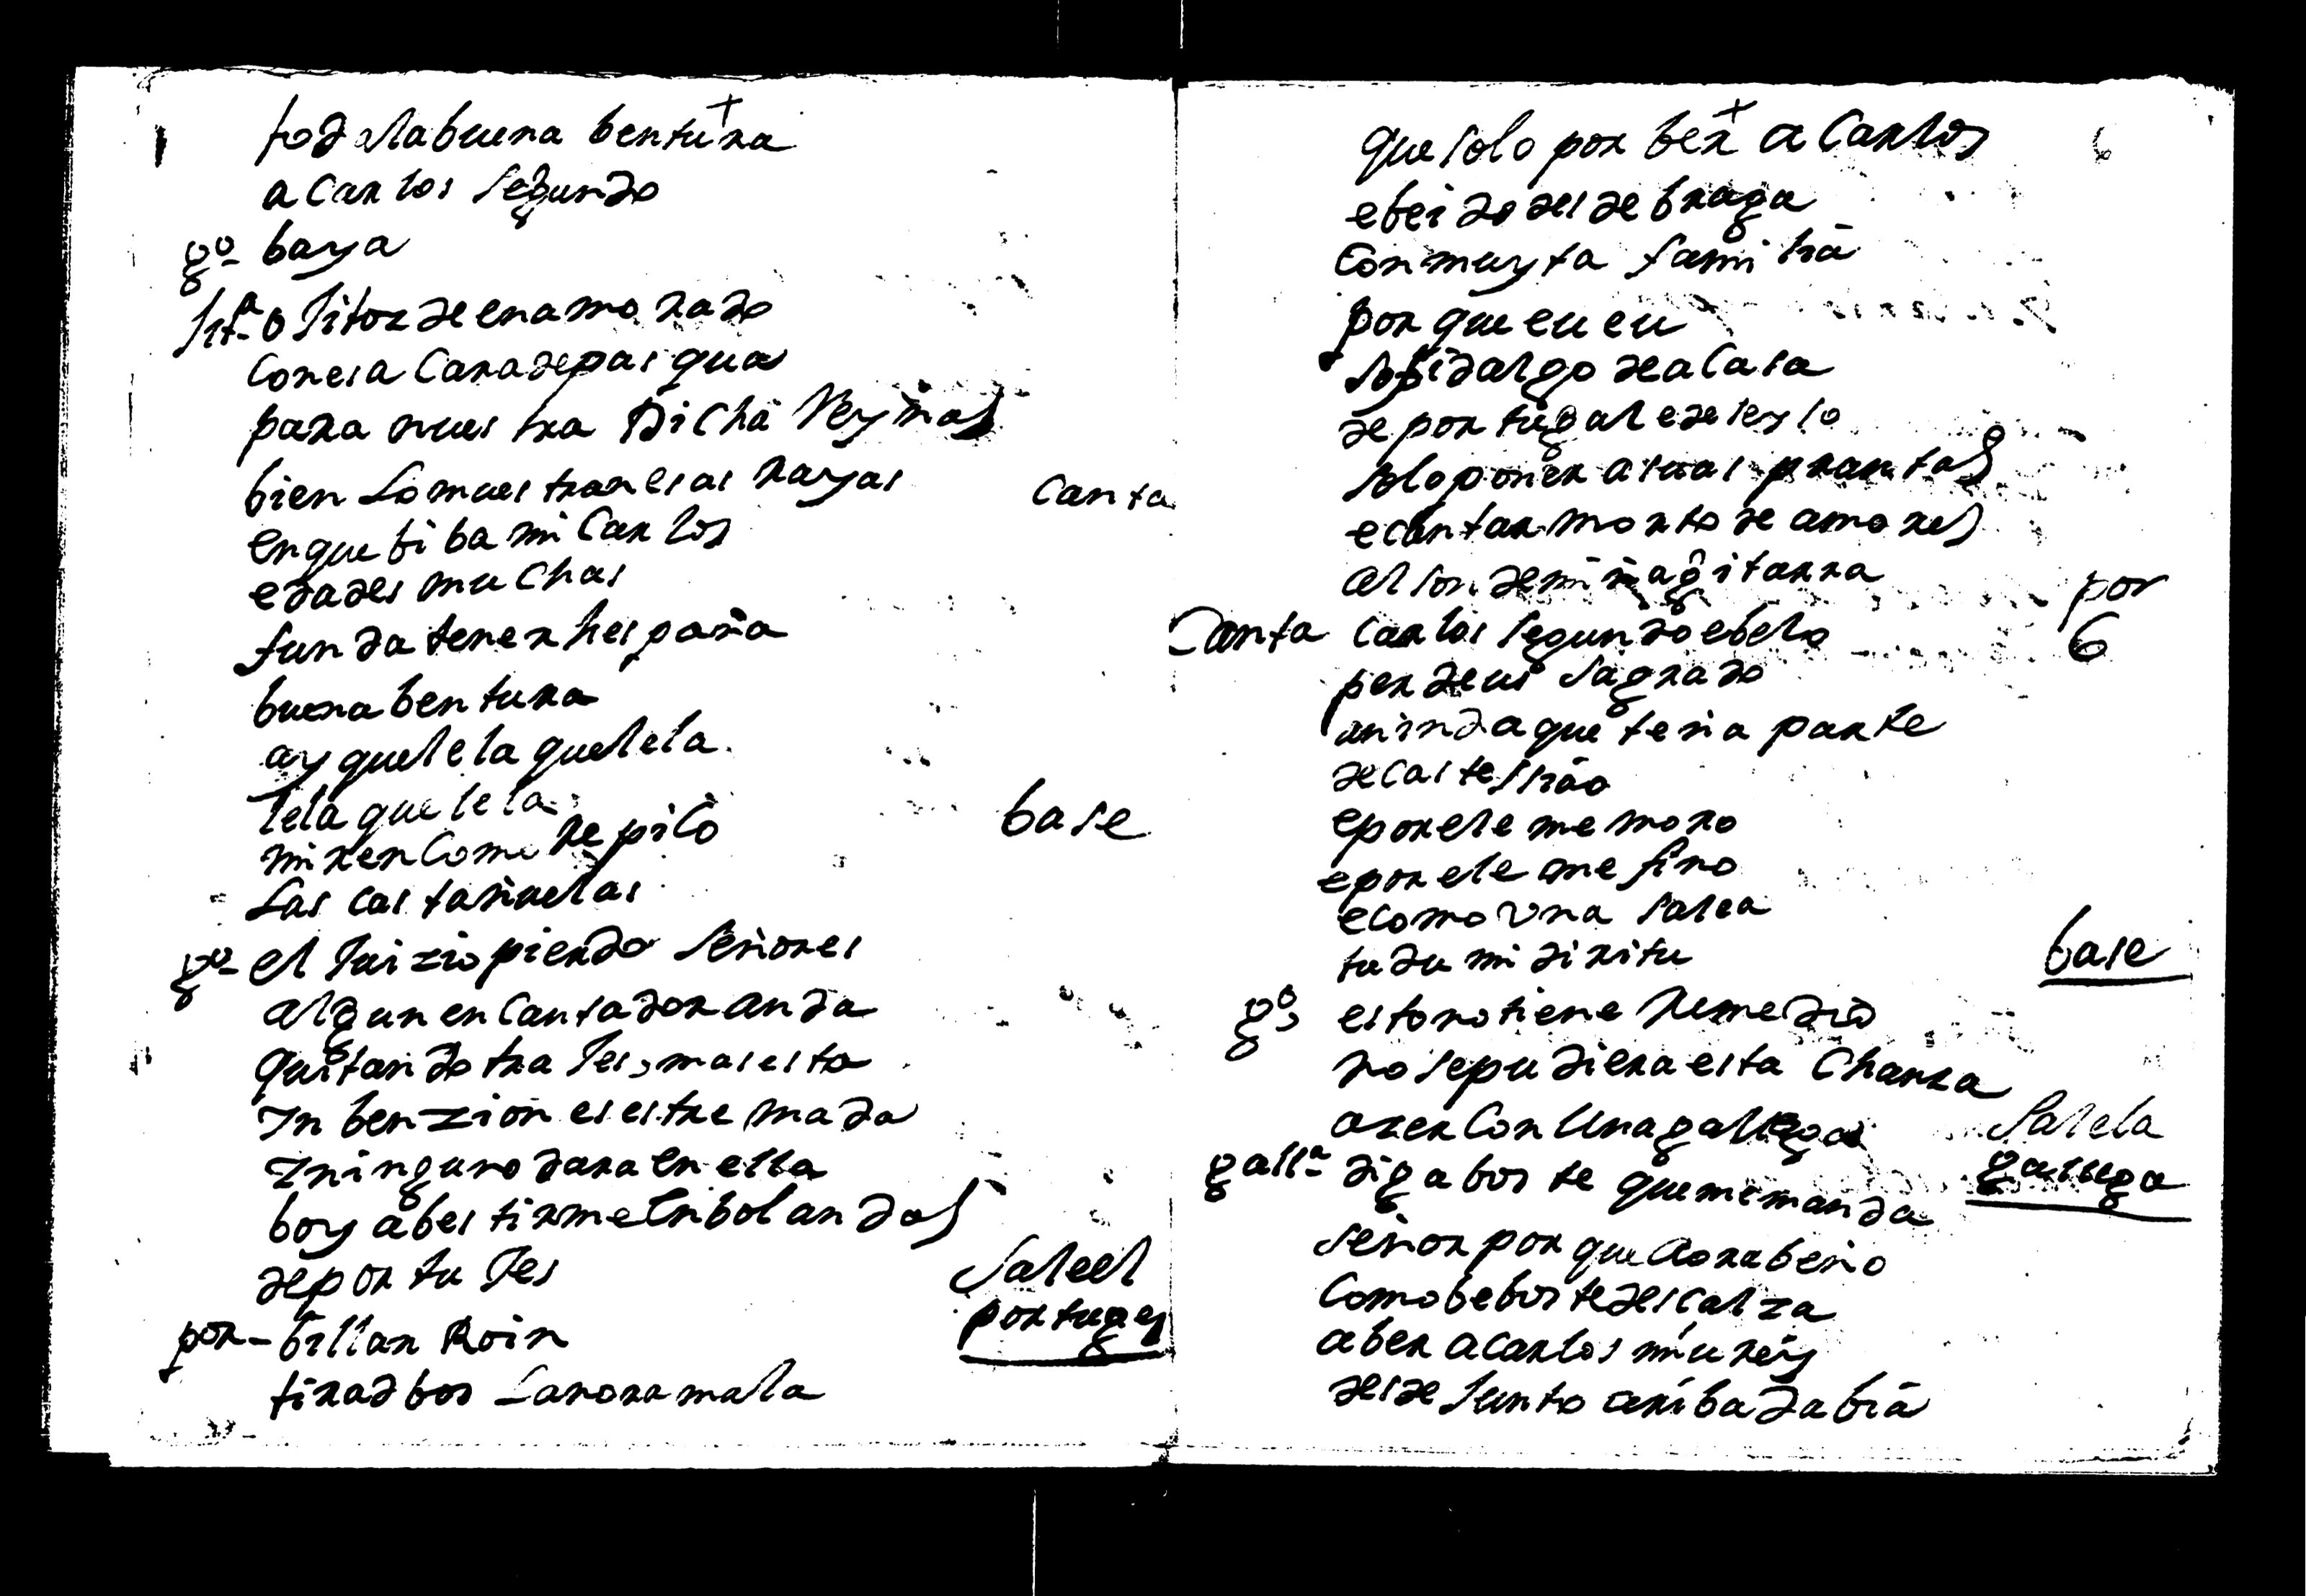 toda la buena bentura
a Carlos segundo
g.º- baya
jit.ª- o Jitor de enamorado
con esa Cara de pasqua
para nuestra Dicha Reynas
bien Lo muestran esas rayas
Canta
en que biba mi Carlos
edades muchas
funda tener hespaña
buena bentura
ay que le la que le la
le la que le la
base
miren Como repico
Las castañuelas
g.º- el Juizio pierdo señores
algun encantador anda
quitando trajes, mas esta
Inbenzion es estremada
I ninguno dara en ella
boy a bestirme en bolandas
de portujes
sale el
portuges
por- billan Roin
tirad bos La nora mala
que solo por ber a Carlos
6
e beido desde braga
Con muyta familia
por que eu eu
so fidalgo de a Casa
de portugal e de seyso
solo poner a suas prantas
e cantar morto de amores
al son de miña gitarra
por
6
Canta Carlos segundo e belo
per deus sagrado
ainda que teña parte
de castesllão
e por ele me moro
e por ele me fino
e como una salea
tudu mi diritu
base
g.º esto no tiene Remedio
no se pudiera esta Chanza
azer Con Una gallega
sale la
gallega
gall.ª- diga boste que me manda
señor por que aora beño
Como be boste descalza
a ber a Carlos miu rey
desde Junto arriba dabia